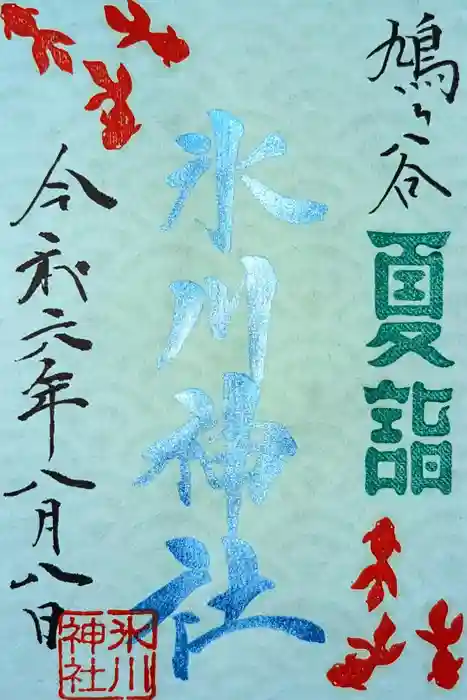 鳩ヶ谷
夏詣
氷川神社
令和六年八月八日
氷川
神社